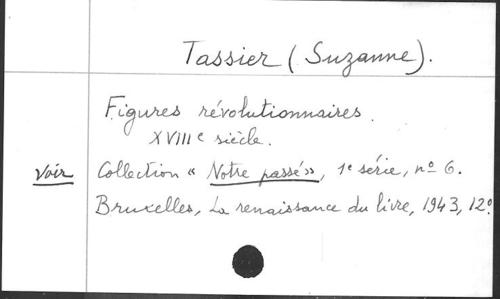 Tassier (Suzanne).
Figures révolutionnaires.
XVIIIe siècle.
Voir Collection « Notre passé », 1e série, nº 6.
Bruxelles, La renaissance du livre, 1943, 12º.